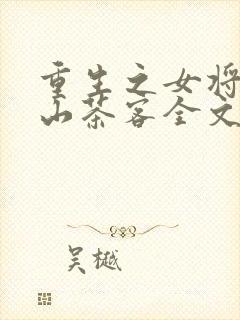 重生之女将
山茶客全文
吴樾